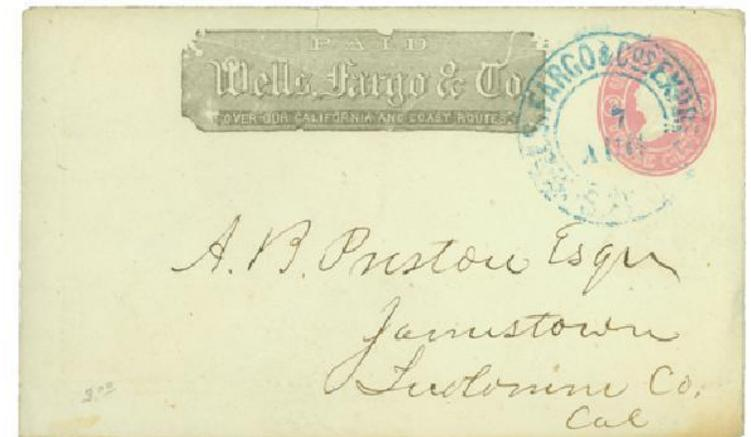 PAID
Wells, Fargo & Co
OVER OUR CALIFORNIA AND COAST ROUTES
WELLS, FARGO & COS EXPRESS
7
AUG
A. B. Preston Esqr
Jamestown
Tuolomine Co.
Cal